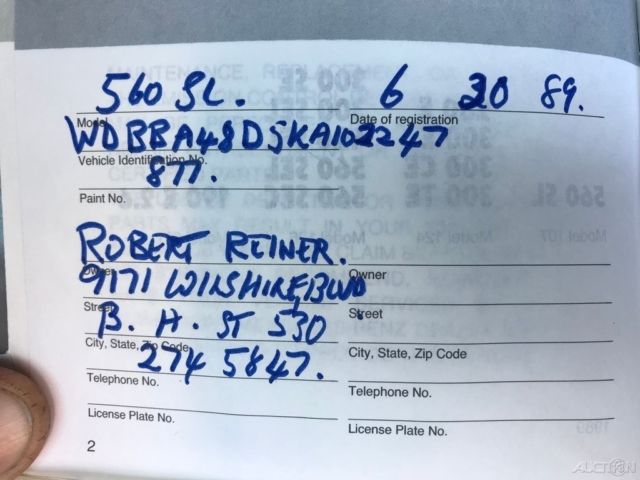 560 SL. 6 20 89.
Model Date of registration
WDBBA48D5KA102247
Vehicle Identification No.
877.
Paint No.
ROBERT REINER.
Owner Owner
9171 WILSHIRE BLVD
Street Street
B. H. ST 530
City, State, Zip Code City, State, Zip Code
274 5847.
Telephone No. Telephone No.
License Plate No. License Plate No.
2
AUCTION